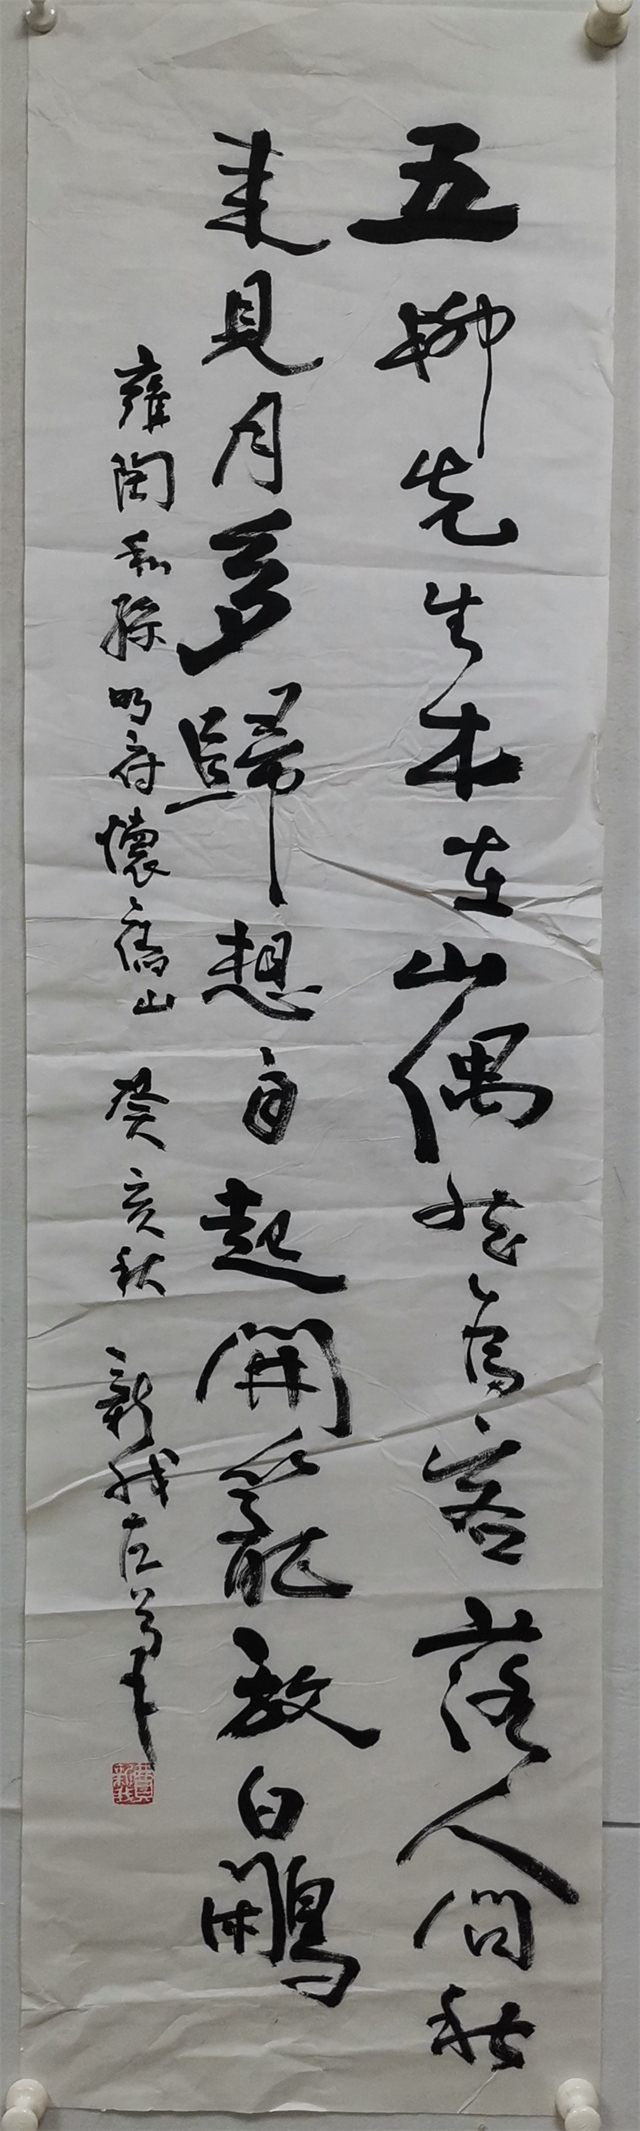 五柳先生本在山偶然為客落人間秋
来見月多歸想自起開籠放白鷴
雍陶和孫明府懷舊山 癸亥秋 新我左筆
費新我